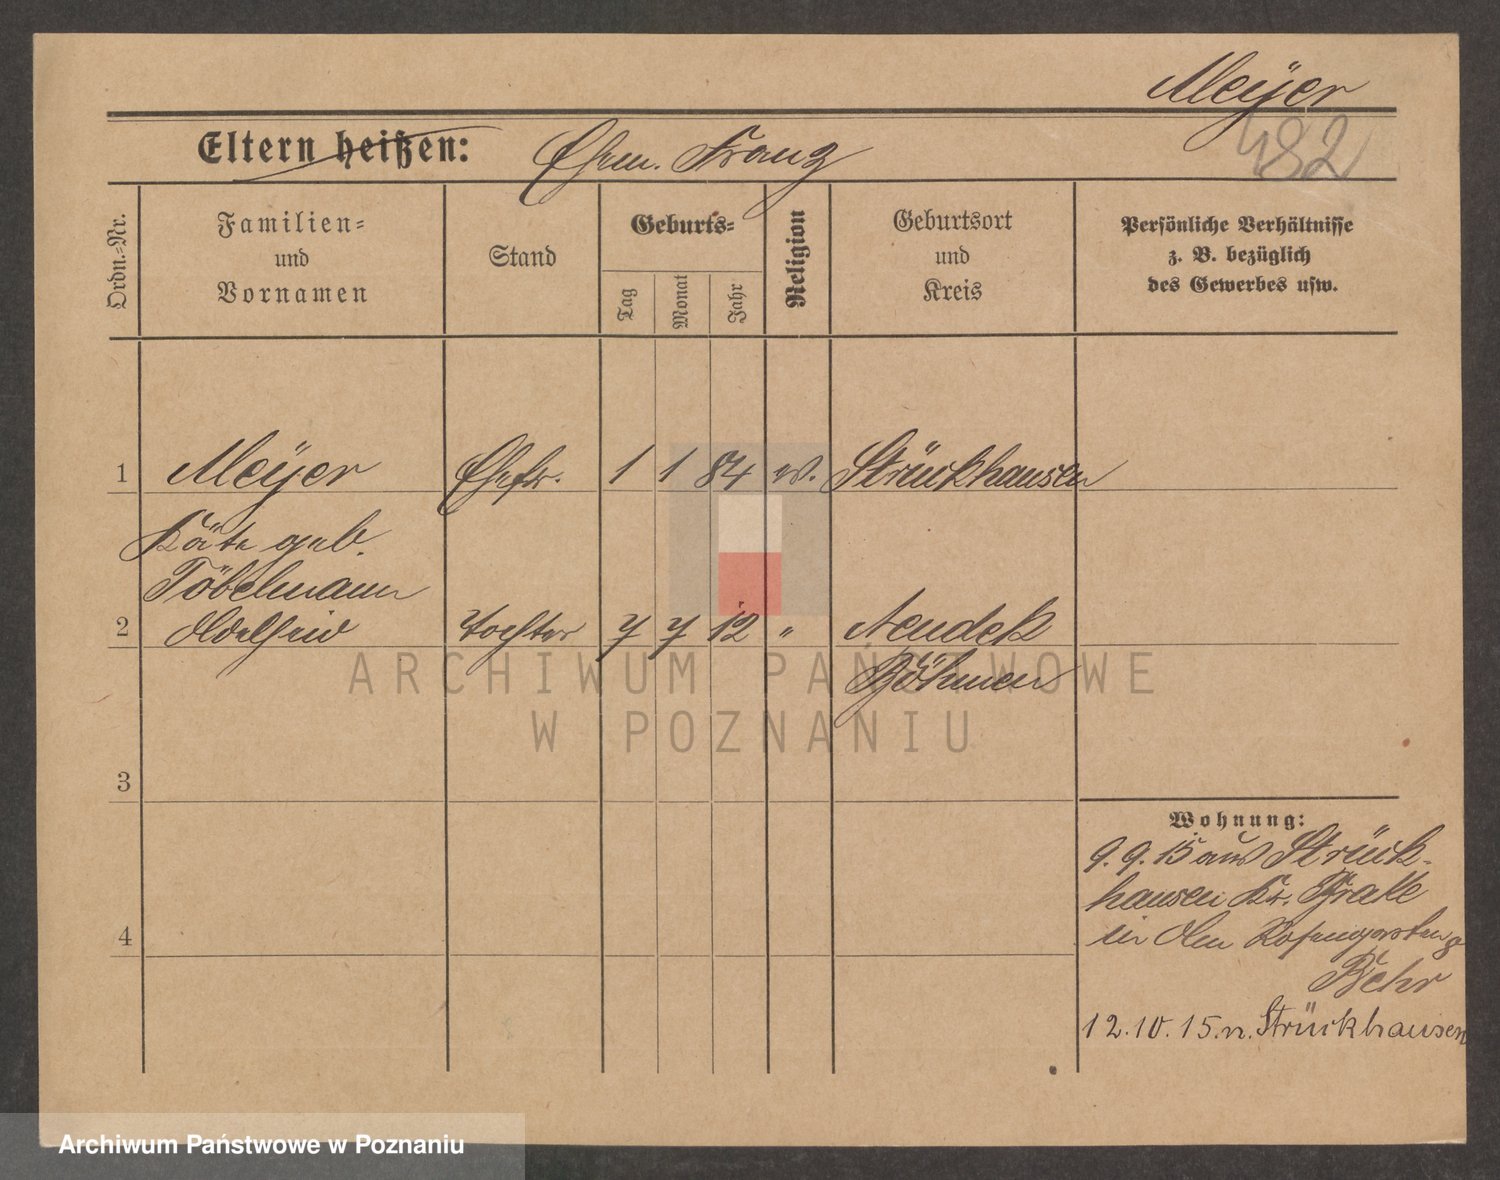 Meÿer
482
Eltern heißen: Ehem. Franz
Ordn.=Nr.
Familien=
und
Vornamen
Stand
Geburts=
Tag
Monat
Jahr
Religion
Geburtsort
und
Kreis
Persönliche Verhältnisse
z. B. bezüglich
des Gewerbes usw.
1 Meÿer Ehefr. 1 1 84 ev. Strückhausen
Käte geb.
Töbelmann
2 Adelheid Tochter 7 7 12 " Neudek
Böhmen
ARCHIWUM PAŃSTWOWE
W POZNANIU
3
Wohnung:
9. 9. 15 aus Strück-
hausen Kr. Brake
in Rosengarten
4
Behr
12.10.15. n. Strückhausen
Archiwum Państwowe w Poznaniu